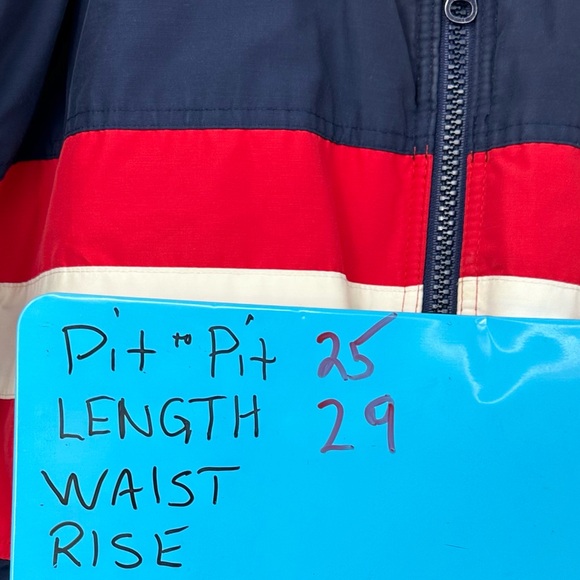 Pit to Pit 25
LENGTH 29
WAIST
RISE